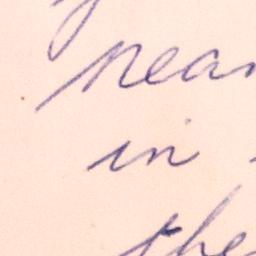 near
in
the